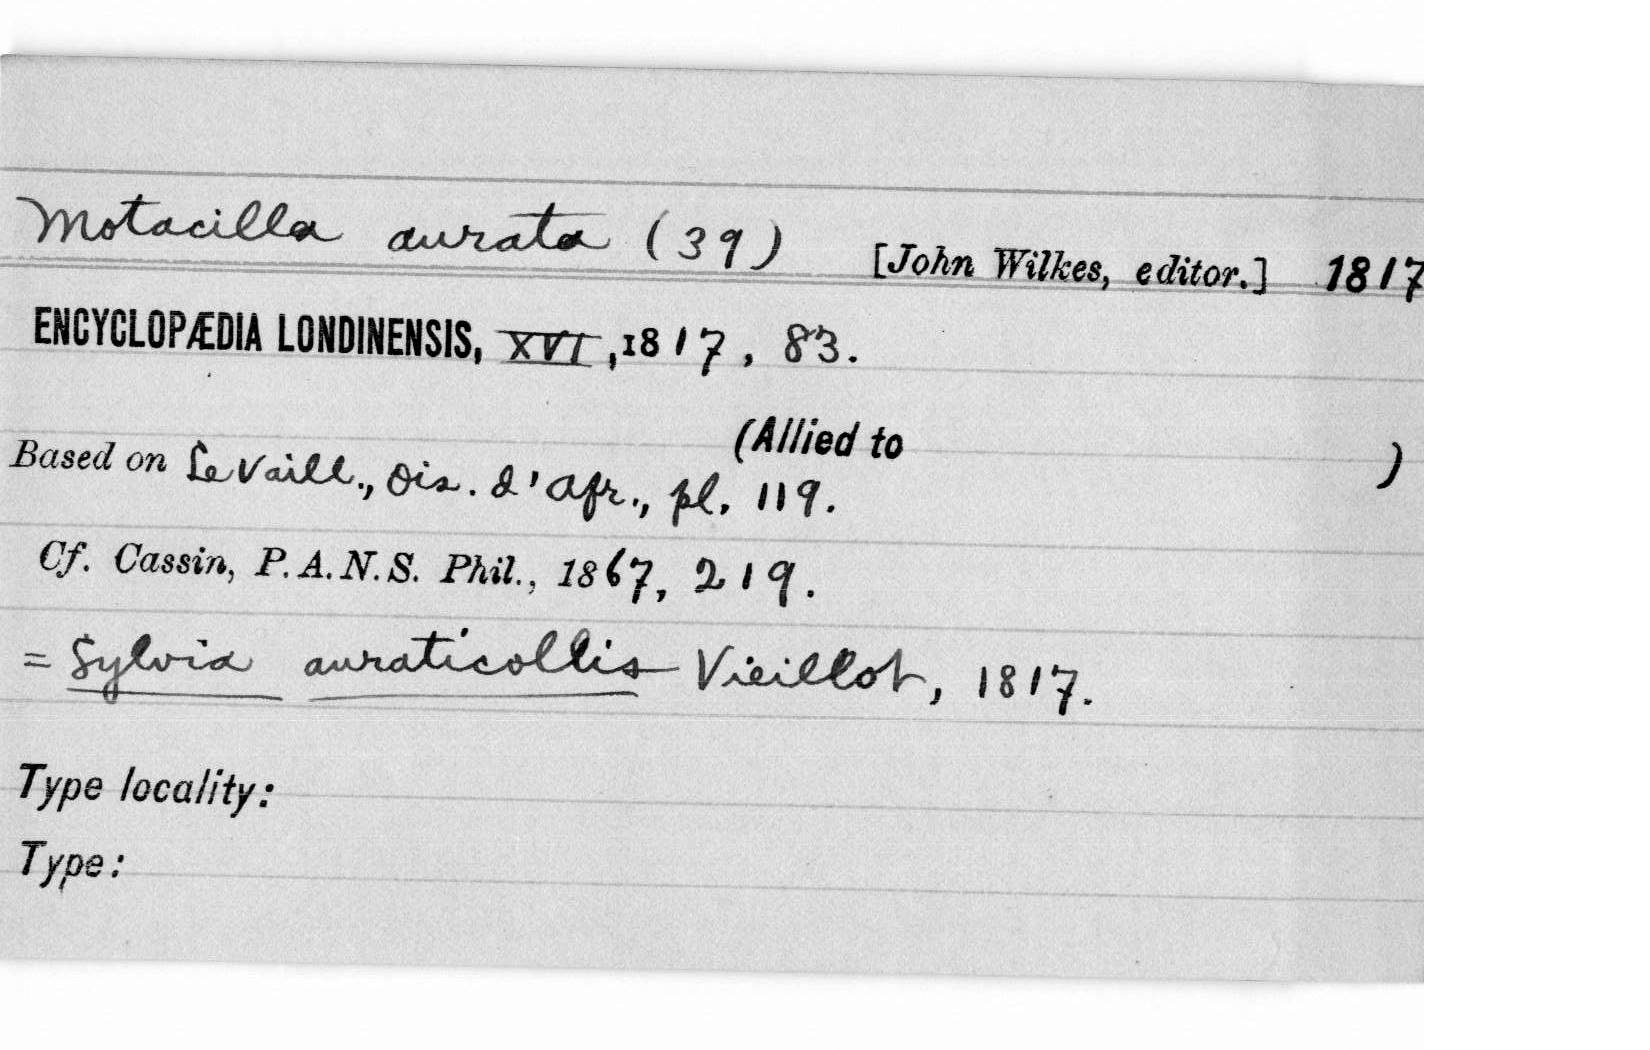 Motacilla aurata (39) [John Wilkes, editor.] 1817
ENCYCLOPÆDIA LONDINENSIS, XVI, 1817, 83.
(Allied to )
Based on LeVaill., Ois. d'Afr., pl. 119.
Cf. Cassin, P.A.N.S. Phil., 1867, 219.
= Sylvia auraticollis Vieillot, 1817.
Type locality:
Type: